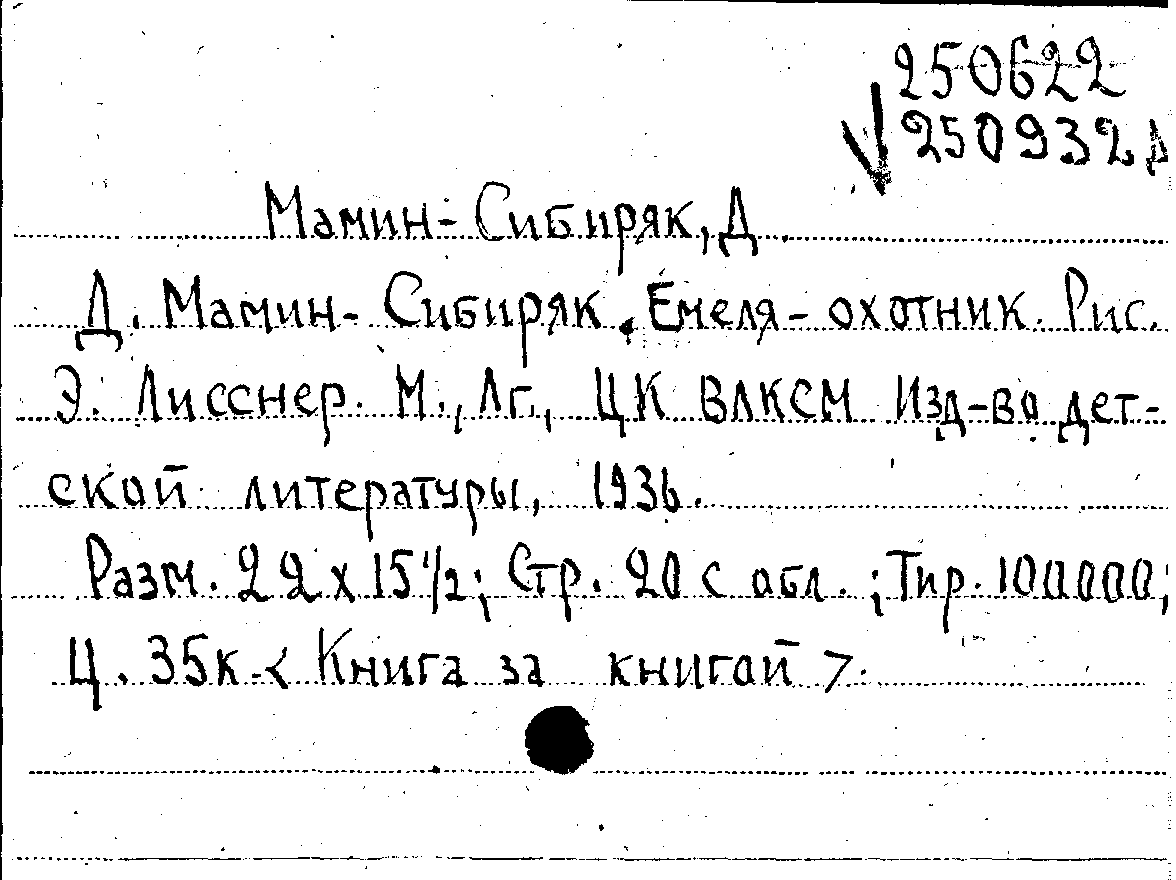 250622
250932
Мамин-Сибиряк, Д.
Д. Мамин-Сибиряк. Емеля-охотник. Рис.
Э. Лисснер. М., Лг., ЦК ВЛКСМ Изд-во дет-
ской литературы, 1936.
Разм. 22 х 15 1/2; Стр. 20 с обл.; Тир. 100000;
Ц. 35к. < Книга за книгой >.